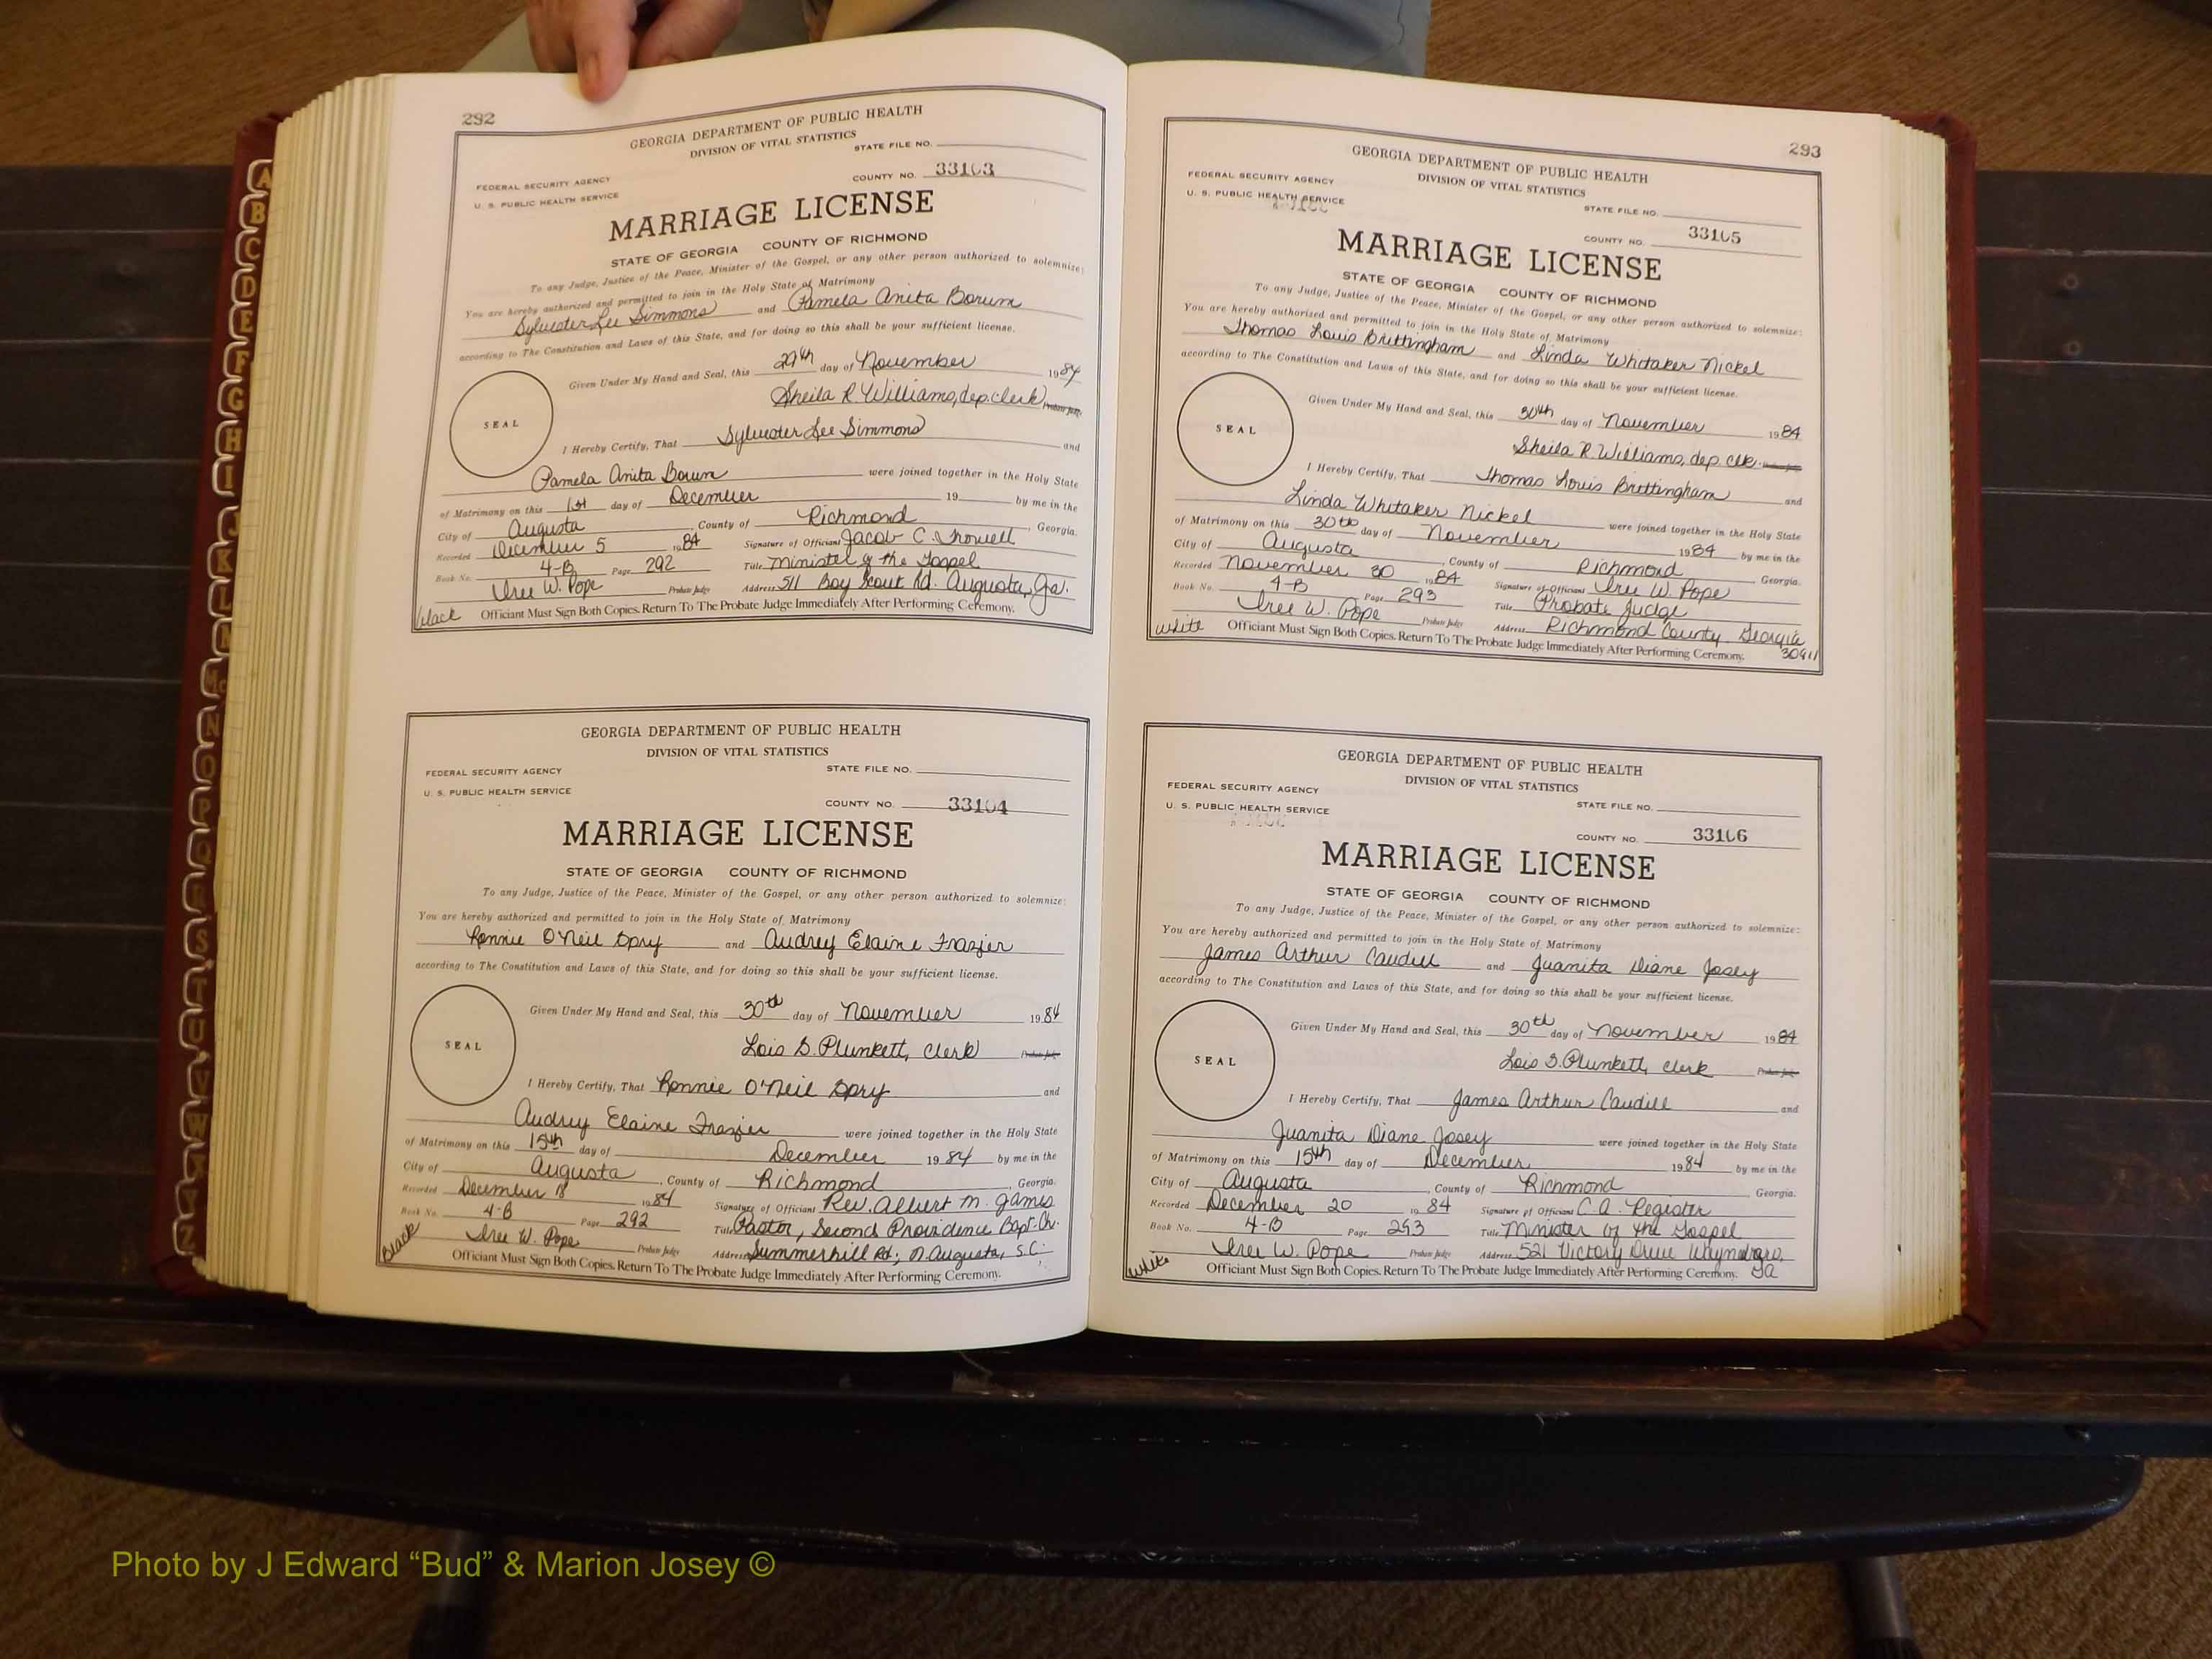 292
GEORGIA DEPARTMENT OF PUBLIC HEALTH
DIVISION OF VITAL STATISTICS
STATE FILE NO.
FEDERAL SECURITY AGENCY
COUNTY NO. 33103
U. S. PUBLIC HEALTH SERVICE
MARRIAGE LICENSE
STATE OF GEORGIA COUNTY OF RICHMOND
To any Judge, Justice of the Peace, Minister of the Gospel, or any other person authorized to solemnize:
You are hereby authorized and permitted to join in the Holy State of Matrimony
Sylvester Lee Simmons and Pamela Anita Borum
according to The Constitution and Laws of this State, and for doing so this shall be your sufficient license.
Given Under My Hand and Seal, this 29th day of November 1984
Sheila R. Williams, dep. clerk Probate Judge
SEAL
I Hereby Certify, That Sylvester Lee Simmons and
Pamela Anita Borum were joined together in the Holy State
of Matrimony on this 1st day of December 19 by me in the
City of Augusta, County of Richmond, Georgia.
Recorded December 5 1984 Signature of Officiant Jacob C. Trowell
Book No. 4-B Page 292 Title Minister of the Gospel
Iree W. Pope Probate Judge Address 511 Boy Scout Rd. Augusta, Ga.
black Officiant Must Sign Both Copies. Return To The Probate Judge Immediately After Performing Ceremony.
GEORGIA DEPARTMENT OF PUBLIC HEALTH
DIVISION OF VITAL STATISTICS
FEDERAL SECURITY AGENCY
STATE FILE NO.
U. S. PUBLIC HEALTH SERVICE
COUNTY NO. 33104
MARRIAGE LICENSE
STATE OF GEORGIA COUNTY OF RICHMOND
To any Judge, Justice of the Peace, Minister of the Gospel, or any other person authorized to solemnize:
You are hereby authorized and permitted to join in the Holy State of Matrimony
Ronnie O'Neil Spry and Audrey Elaine Frazier
according to The Constitution and Laws of this State, and for doing so this shall be your sufficient license.
Given Under My Hand and Seal, this 30th day of November 1984
Lois S. Plunkett, Clerk Probate Judge
SEAL
I Hereby Certify, That Ronnie O'Neil Spry and
Audrey Elaine Frazier were joined together in the Holy State
of Matrimony on this 15th day of December 1984 by me in the
City of Augusta, County of Richmond, Georgia.
Recorded December 18 1984 Signature of Officiant Rev. Albert M. James
Book No. 4-B Page 292 Title Pastor, Second Providence Bapt. Ch.
Iree W. Pope Probate Judge Address Summerhill Rd; N. Augusta, S.C.
Black Officiant Must Sign Both Copies. Return To The Probate Judge Immediately After Performing Ceremony.
293
GEORGIA DEPARTMENT OF PUBLIC HEALTH
DIVISION OF VITAL STATISTICS
FEDERAL SECURITY AGENCY
STATE FILE NO.
U. S. PUBLIC HEALTH SERVICE
COUNTY NO. 33105
MARRIAGE LICENSE
STATE OF GEORGIA COUNTY OF RICHMOND
To any Judge, Justice of the Peace, Minister of the Gospel, or any other person authorized to solemnize:
You are hereby authorized and permitted to join in the Holy State of Matrimony
Thomas Louis Brittingham and Linda Whitaker Nickel
according to The Constitution and Laws of this State, and for doing so this shall be your sufficient license.
Given Under My Hand and Seal, this 30th day of November 1984
Sheila R. Williams, dep. clk. Probate Judge
SEAL
I Hereby Certify, That Thomas Louis Brittingham and
Linda Whitaker Nickel were joined together in the Holy State
of Matrimony on this 30th day of November 1984 by me in the
City of Augusta, County of Richmond Georgia.
Recorded November 30 1984 Signature of Officiant Iree W. Pope
Book No. 4-B Page 293 Title Probate Judge
Iree W. Pope Probate Judge Address Richmond County, Georgia
white Officiant Must Sign Both Copies. Return To The Probate Judge Immediately After Performing Ceremony. 30911
GEORGIA DEPARTMENT OF PUBLIC HEALTH
DIVISION OF VITAL STATISTICS
FEDERAL SECURITY AGENCY
STATE FILE NO.
U. S. PUBLIC HEALTH SERVICE
COUNTY NO. 33106
MARRIAGE LICENSE
STATE OF GEORGIA COUNTY OF RICHMOND
To any Judge, Justice of the Peace, Minister of the Gospel, or any other person authorized to solemnize:
You are hereby authorized and permitted to join in the Holy State of Matrimony
James Arthur Caudill and Juanita Diane Josey
according to The Constitution and Laws of this State, and for doing so this shall be your sufficient license.
Given Under My Hand and Seal, this 30th day of November 1984
Lois S. Plunkett, Clerk Probate Judge
SEAL
I Hereby Certify, That James Arthur Caudill and
Juanita Diane Josey were joined together in the Holy State
of Matrimony on this 15th day of December 1984 by me in the
City of Augusta, County of Richmond Georgia.
Recorded December 20 1984 Signature of Officiant C. A. Register
Book No. 4-B Page 293 Title Minister of the Gospel
Iree W. Pope Probate Judge Address 521 Victory Drive Waynesboro,
white Officiant Must Sign Both Copies. Return To The Probate Judge Immediately After Performing Ceremony. Ga
Photo by J Edward “Bud” & Marion Josey ©